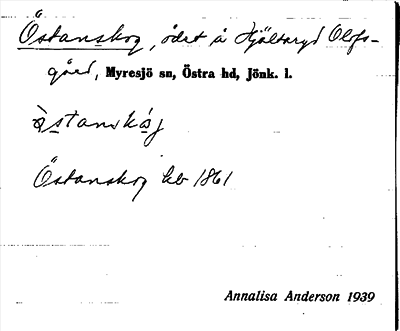 Östanskog, ödet å Hjältaryd Olofs-
gård, Myresjö sn, Östra hd, Jönk. l.
Östanskog kb 1861
Annalisa Anderson 1939